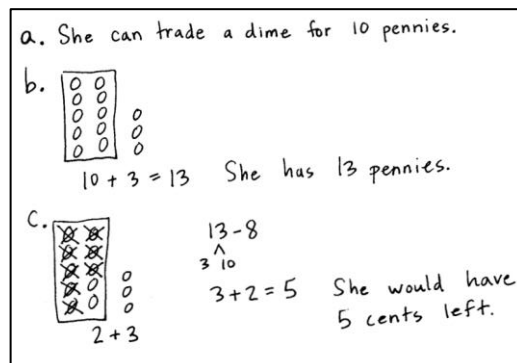 a. She can trade a dime for 10 pennies.
b.
10 + 3 = 13 She has 13 pennies.
c.
13 - 8
3 10
3 + 2 = 5 She would have
5 cents left.
2 + 3